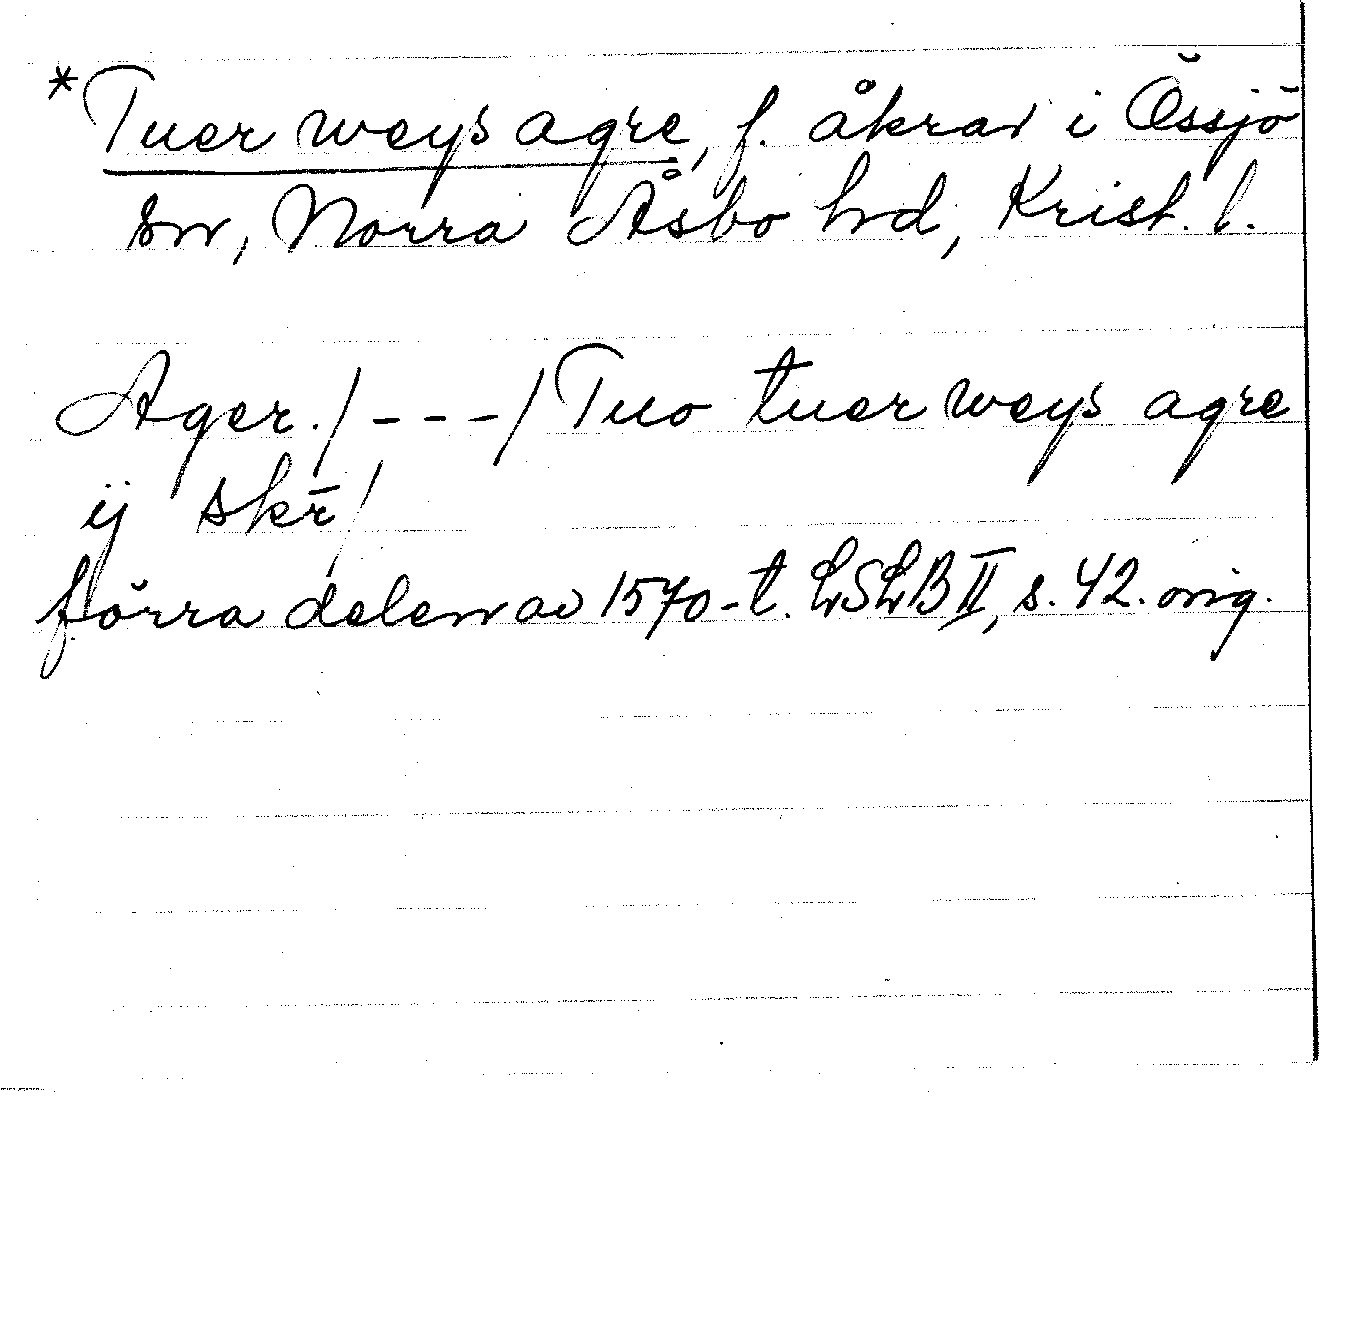 *Tuer weys agre, f. åkrar i Össjö
sn, Norra Åsbo hrd, Krist. l.
Ager. / - - - / Tuo tuer weys agre
ij skr̄ /
förra delen av 1570-t. LSLB II, s. 42. orig.